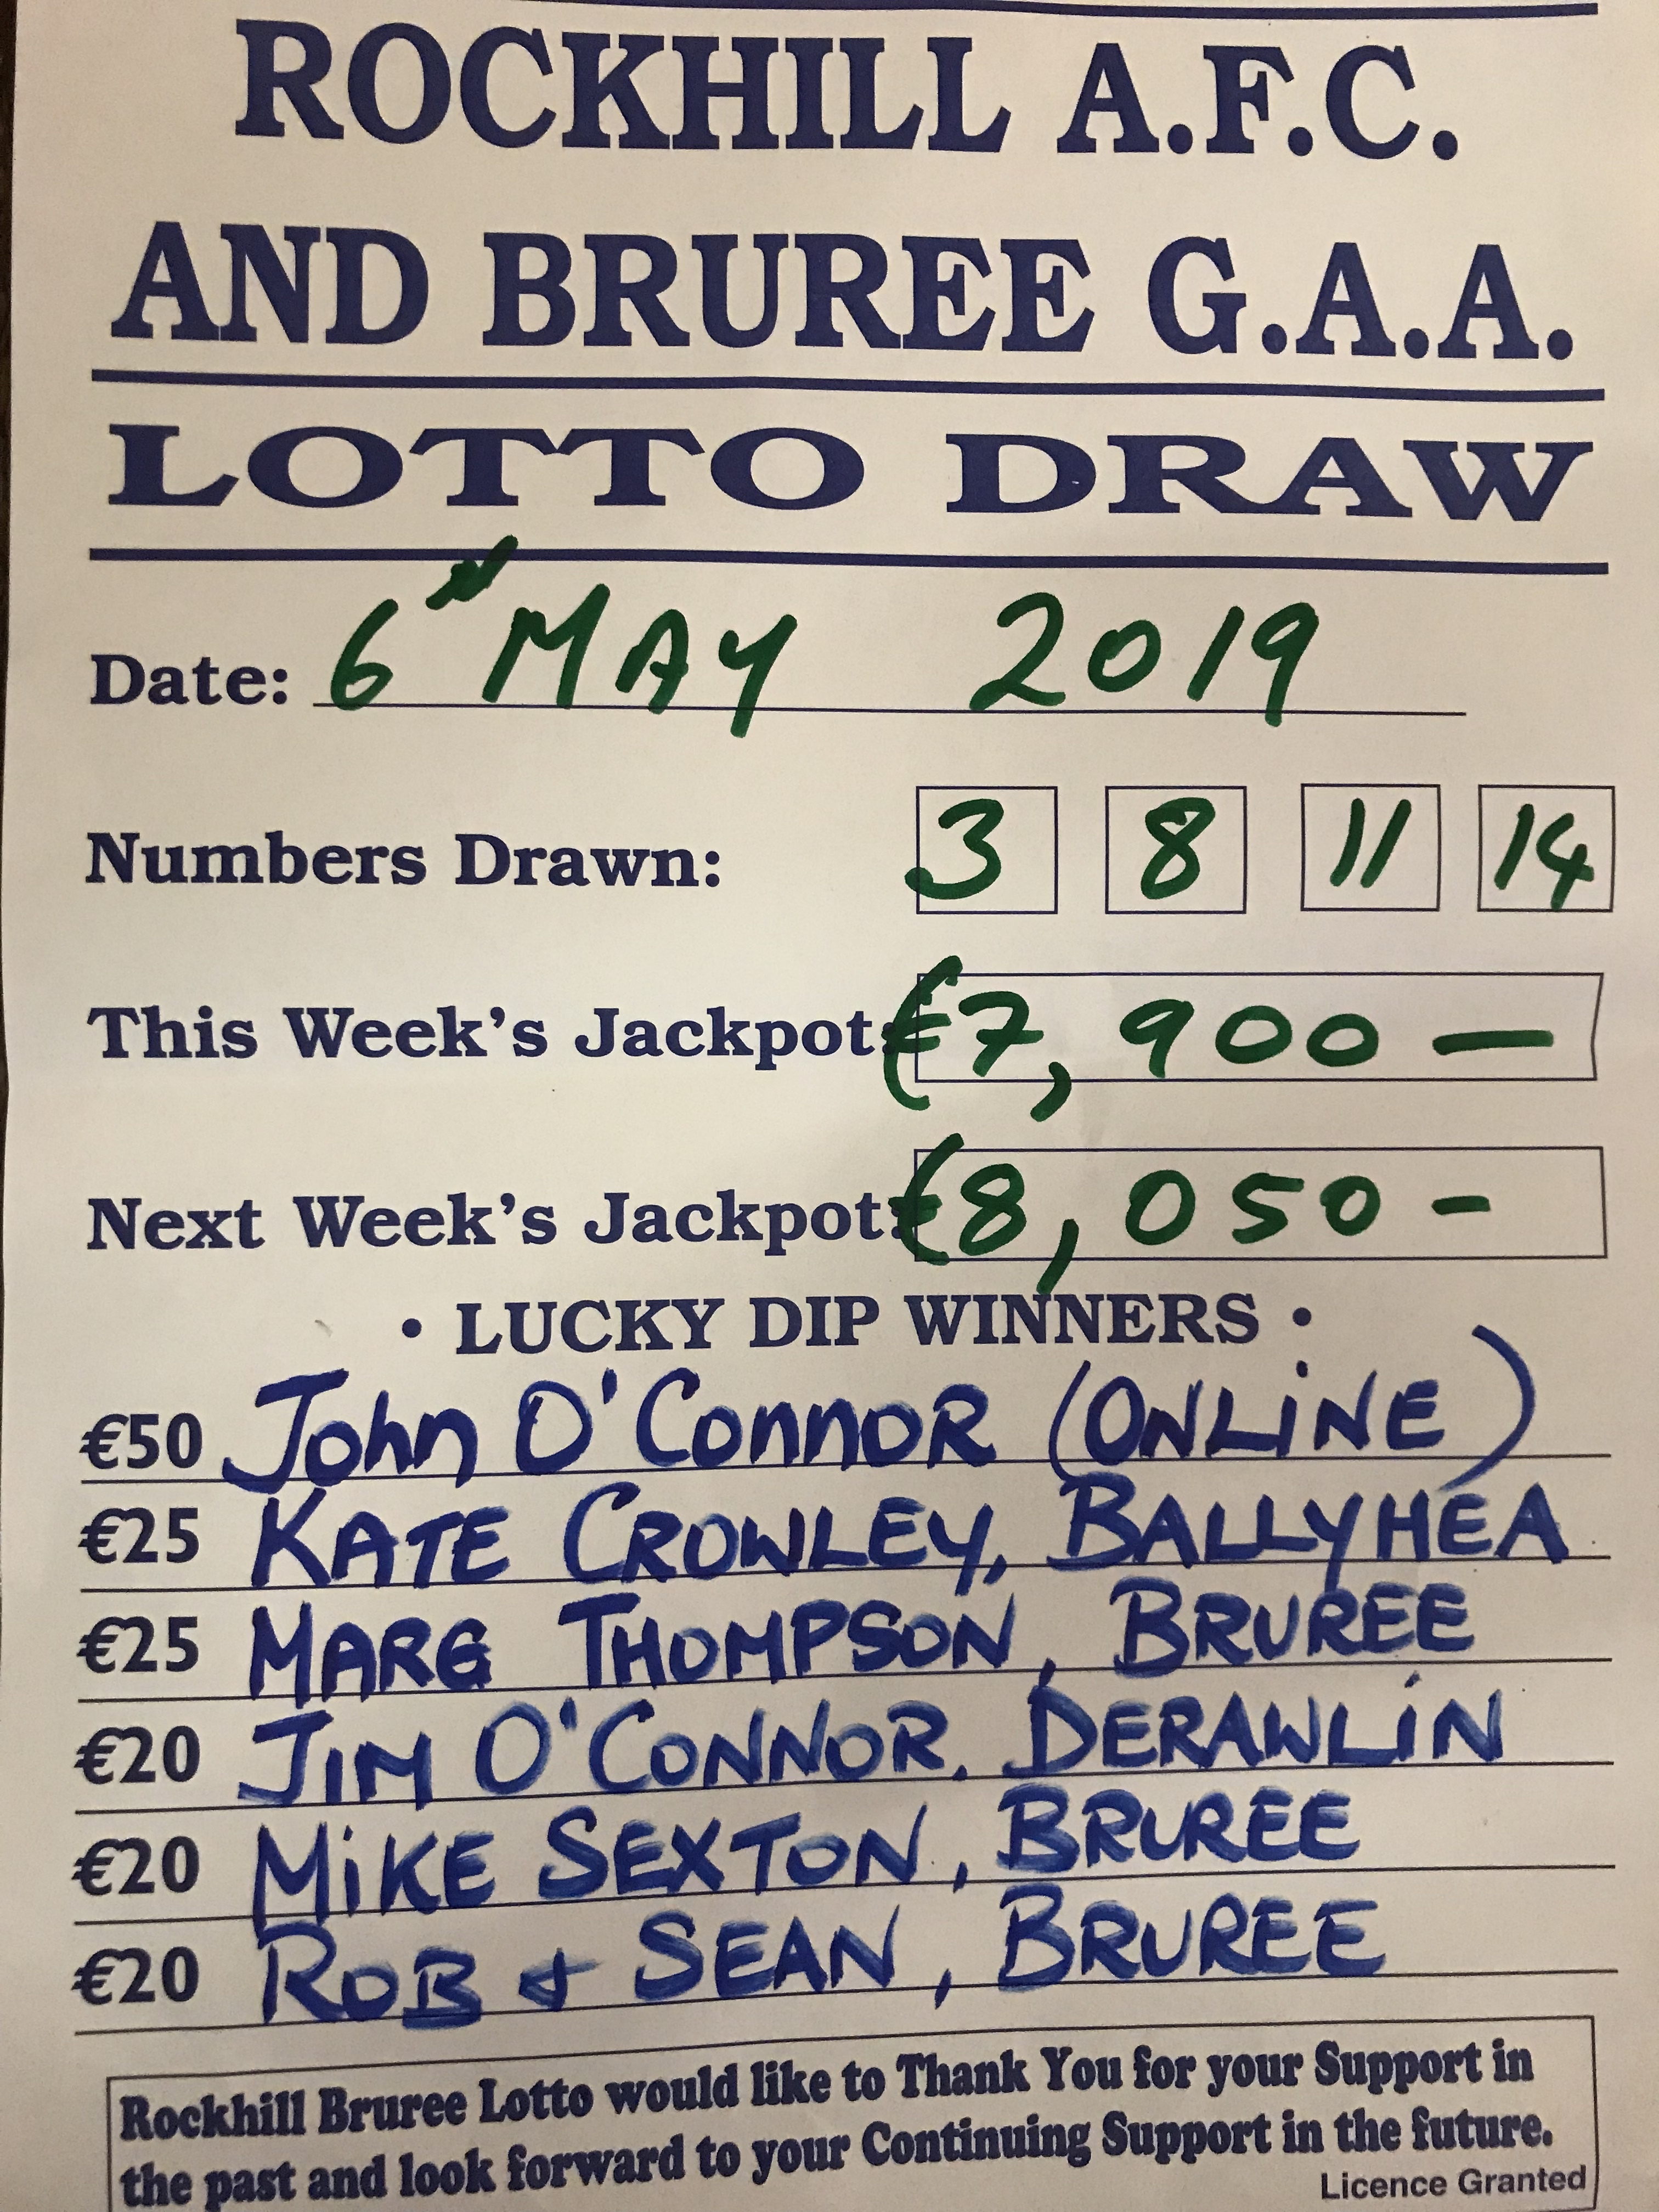 ROCKHILL A.F.C.
AND BRUREE G.A.A.
LOTTO DRAW
Date: 6th MAY 2019
Numbers Drawn: 3 8 11 14
This Week's Jackpot: €7,900 —
Next Week's Jackpot: €8,050 -
• LUCKY DIP WINNERS •
€50 John O'ConnoR (ONLiNE)
€25 KATE CROWLEY, BALLYHEA
€25 MARG THOMPSON, BRUREE
€20 JIM O'CONNOR. DERAWLiN
€20 MiKE SEXTON, BRUREE
€20 ROB & SEAN, BRUREE
Rockhill Bruree Lotto would like to Thank You for your Support in
the past and look forward to your Continuing Support in the future.
Licence Granted